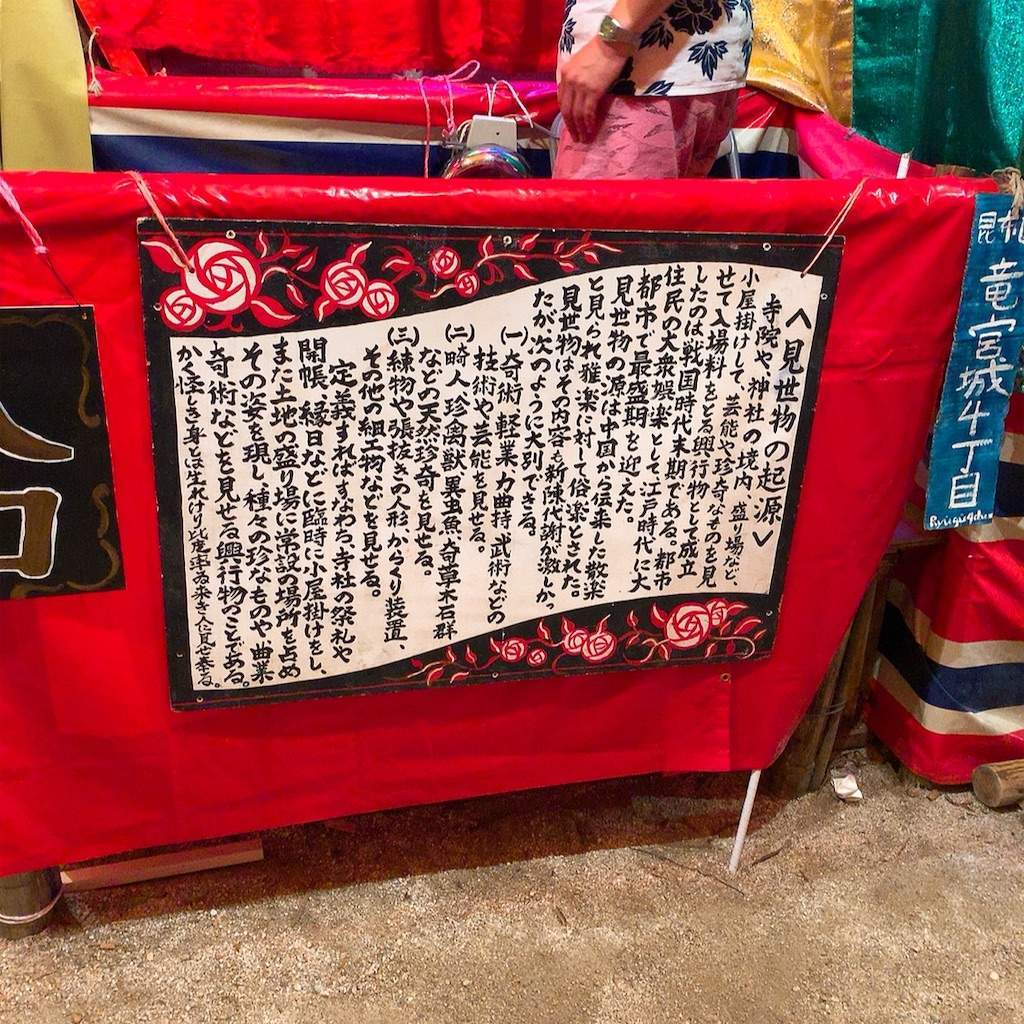 <見世物の起源>
寺院や、神社の境内、盛り場など、
小屋掛けして、芸能や珍奇なものを見
せて入場料をとる興行物として成立
したのは戦国時代末期である。都市
住民の大衆娯楽として、江戸時代に大
都市で最盛期を迎えた。
見世物の源は中国から伝来した散楽
と見られ雅楽に対して俗楽とされた。
見世物はその内容も新陳代謝が激しかっ
たが次のように大別できる。
(一)奇術、軽業、力曲持、武術などの
技術や芸能を見せる。
(二)畸人、珍禽獣、異虫魚、奇草木石群
などの天然珍奇を見せる。
(三)練物や張抜きの人形、からくり装置、
その他の組工物などを見せる。
定義すればすなわち、寺社の祭礼や
開帳、縁日などに臨時に小屋掛けをし、
また土地の盛り場に常設の場所を占め
その姿を現し、種々の珍なものや、曲業
奇術などを見せる興行物のことである。
かく怪しき身とは生れけり
竜宮城4丁目
Ryugu4chu